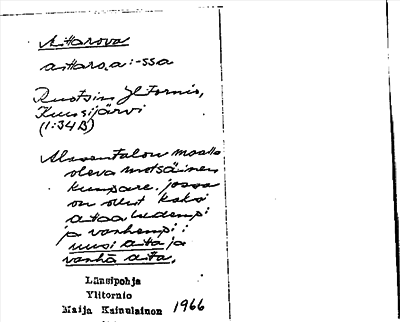 Aittarova
aittaro,a: -ssa
Ruotsin Ylitornio,
Kuusijärvi
(1:34B)
Alassentalon maalla
oleva metsäinen
kumpare, jossa
on ollut kaksi
aitaa uudempi
ja vanhempi:
uusi aita ja
vanha aita.
Länsipohja
Ylitornio
Maija Kainulainen 1966